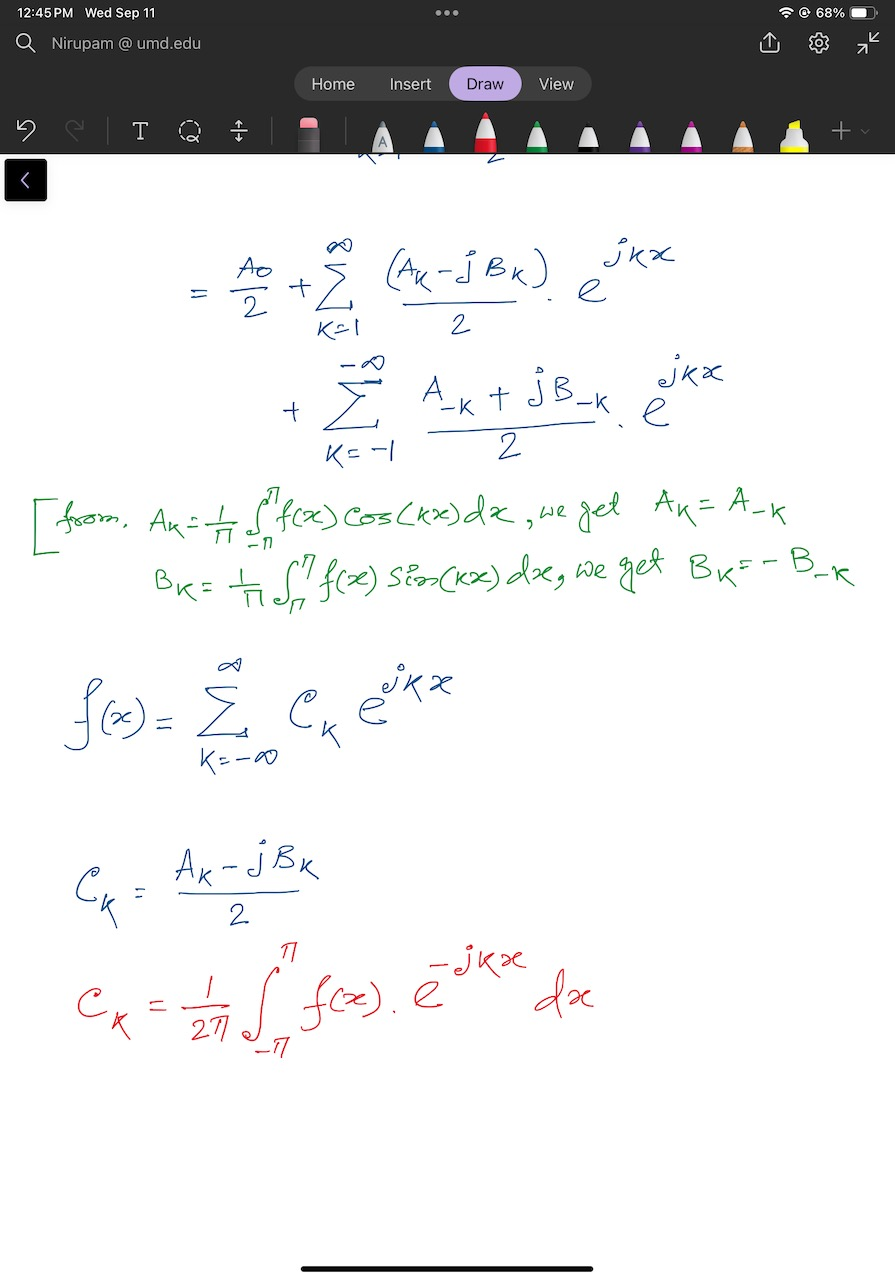 12:45 PM Wed Sep 11 68%
Nirupam @ umd.edu
Home Insert Draw View
T A
= A₀/2 + ∑_{K=1}^{∞} (A_K - j B_K)/2 . e^{jKx}
+ ∑_{K=-1}^{-∞} (A_{-K} + j B_{-K})/2 . e^{jKx}
[from. A_K = 1/π ∫_{-π}^{π} f(x) Cos(Kx) dx, we get A_K = A_{-K}
B_K = 1/π ∫_{π}^{π} f(x) Sin(Kx) dx, we get B_K = - B_{-K}
f(x) = ∑_{K=-∞}^{∞} C_K e^{jKx}
C_K = (A_K - j B_K)/2
C_K = 1/2π ∫_{-π}^{π} f(x) . e^{-jKx} dx